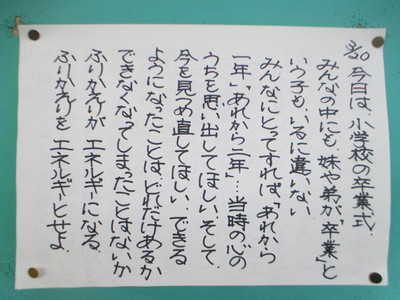 3/20 今日は、小学校の卒業式.
みんなの中にも、妹や弟が、「卒業」と
いう子も、いるに違いない
みんなにとってすれば、「あれから
一年」「あれから一年」…当時の心の
うちを思い出してほしい、そして、
今を見つめ直してほしい、できる
ようになったことは、どれだけあるか
できなくなってしまったことはないか
ふりかえりが エネルギーになる.
ふりかえりを エネルギーとせよ.